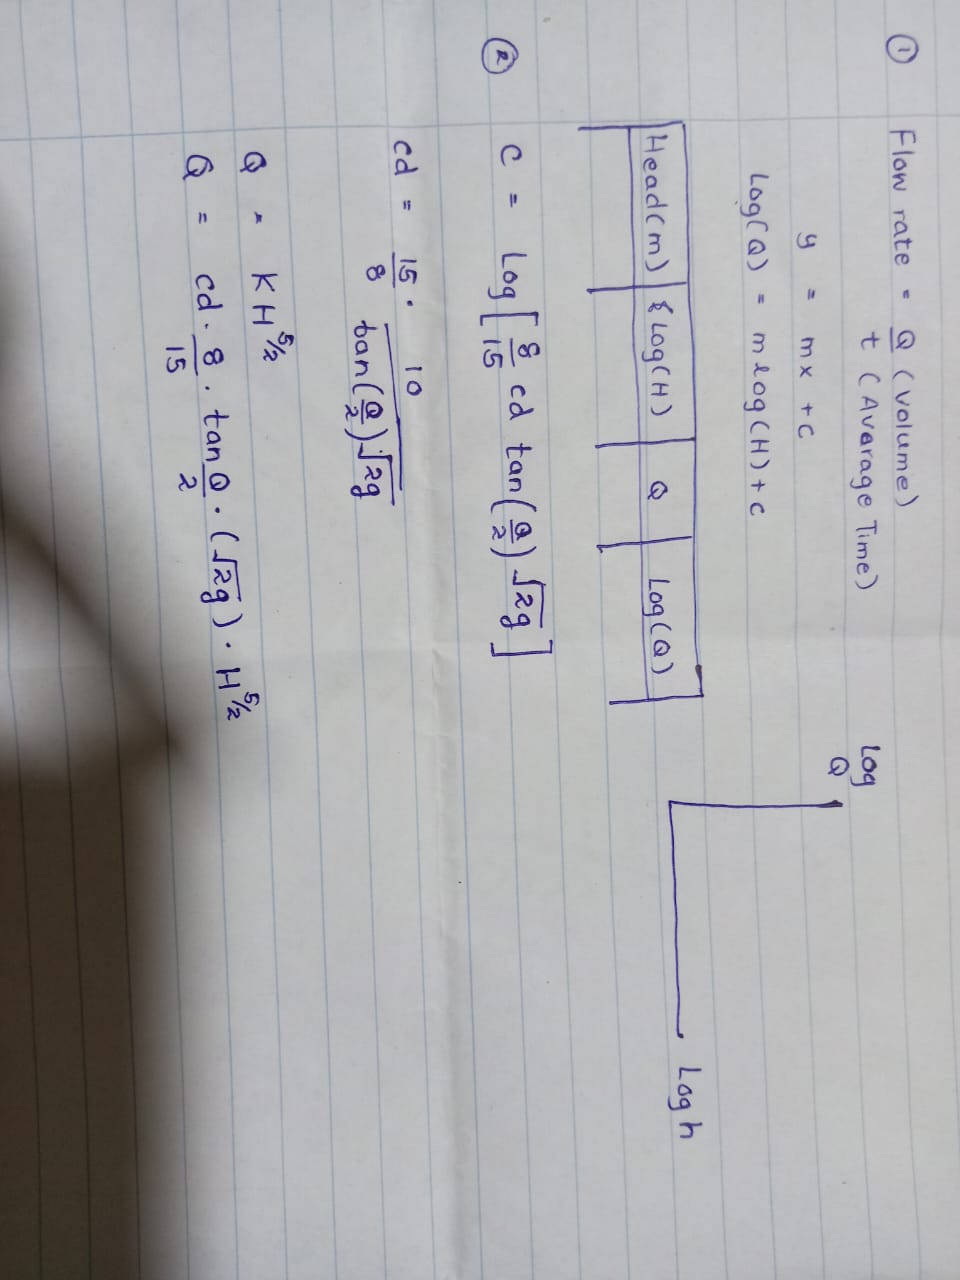 ① Flow rate = Q (volume)
t (Avarage Time)
y = mx + c
Log(Q) = m log(H) + c
Log
Q
Log h
Head(m) Log(H) Q Log(Q)
② C = Log[8/15 cd tan(Q/2) √2g]
cd = 15/8 . 10/tan(Q/2)√2g
Q = KH^5/2
Q = cd . 8/15 . tan Q/2 . (√2g) . H^5/2